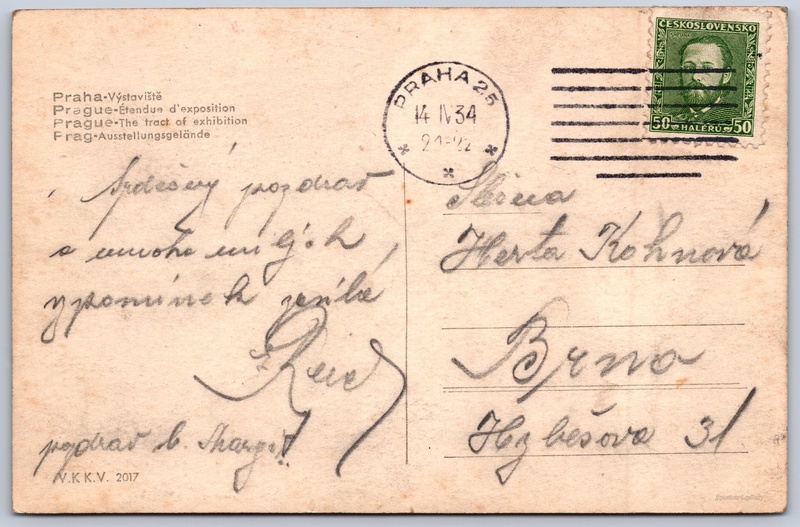 Praha-Výstaviště
Prague-Étendue d'exposition
Prague-The tract of exhibition
Prag-Ausstellungsgelände
PRAHA 25
14 IV 34
21-22
ČESKOSLOVENSKO
50 HALÉŘŮ 50
Srdečný pozdrav
a mnoho milých
vzpomínek posílá
pozdrav sl. Margit
V.K.K.V. 2017
Slečna
Herta Kohnová
Brno
Hybešova 31